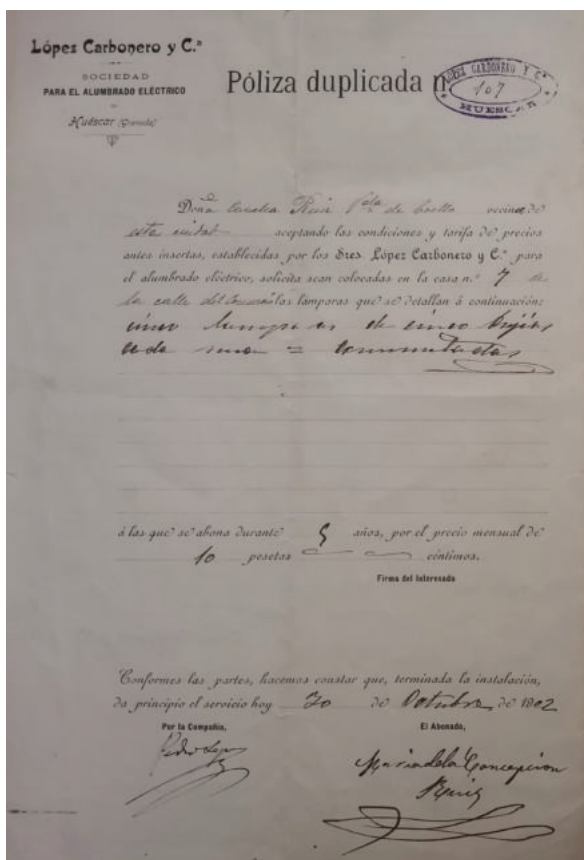 López Carbonero y C.ª
SOCIEDAD
PARA EL ALUMBRADO ELÉCTRICO
DE
Huéscar (Granada)
Póliza duplicada n
LOPEZ CARBONERO Y C.ª
107
HUESCAR
Doña Ruiz Vda de vecina de
esta ciudad aceptando las condiciones y tarifa de precios
antes insertas, establecidas por los Sres. López Carbonero y C.ª para
el alumbrado eléctrico, solicita sean colocadas en la casa n.º 7 de
la calle del las lámparas que se detallan á continuación:
cinco lamparas de cinco bujías
cada una = conmutadas
á las que se abona durante 5 años, por el precio mensual de
10 pesetas céntimos.
Firma del Interesado
Conformes las partes, hacemos constar que, terminada la instalación,
da principio el servicio hoy 30 de Octubre de 1902
Por la Compañía,
El Abonado,
Pedro Lopez
Maria de la Concepcion
Ruiz